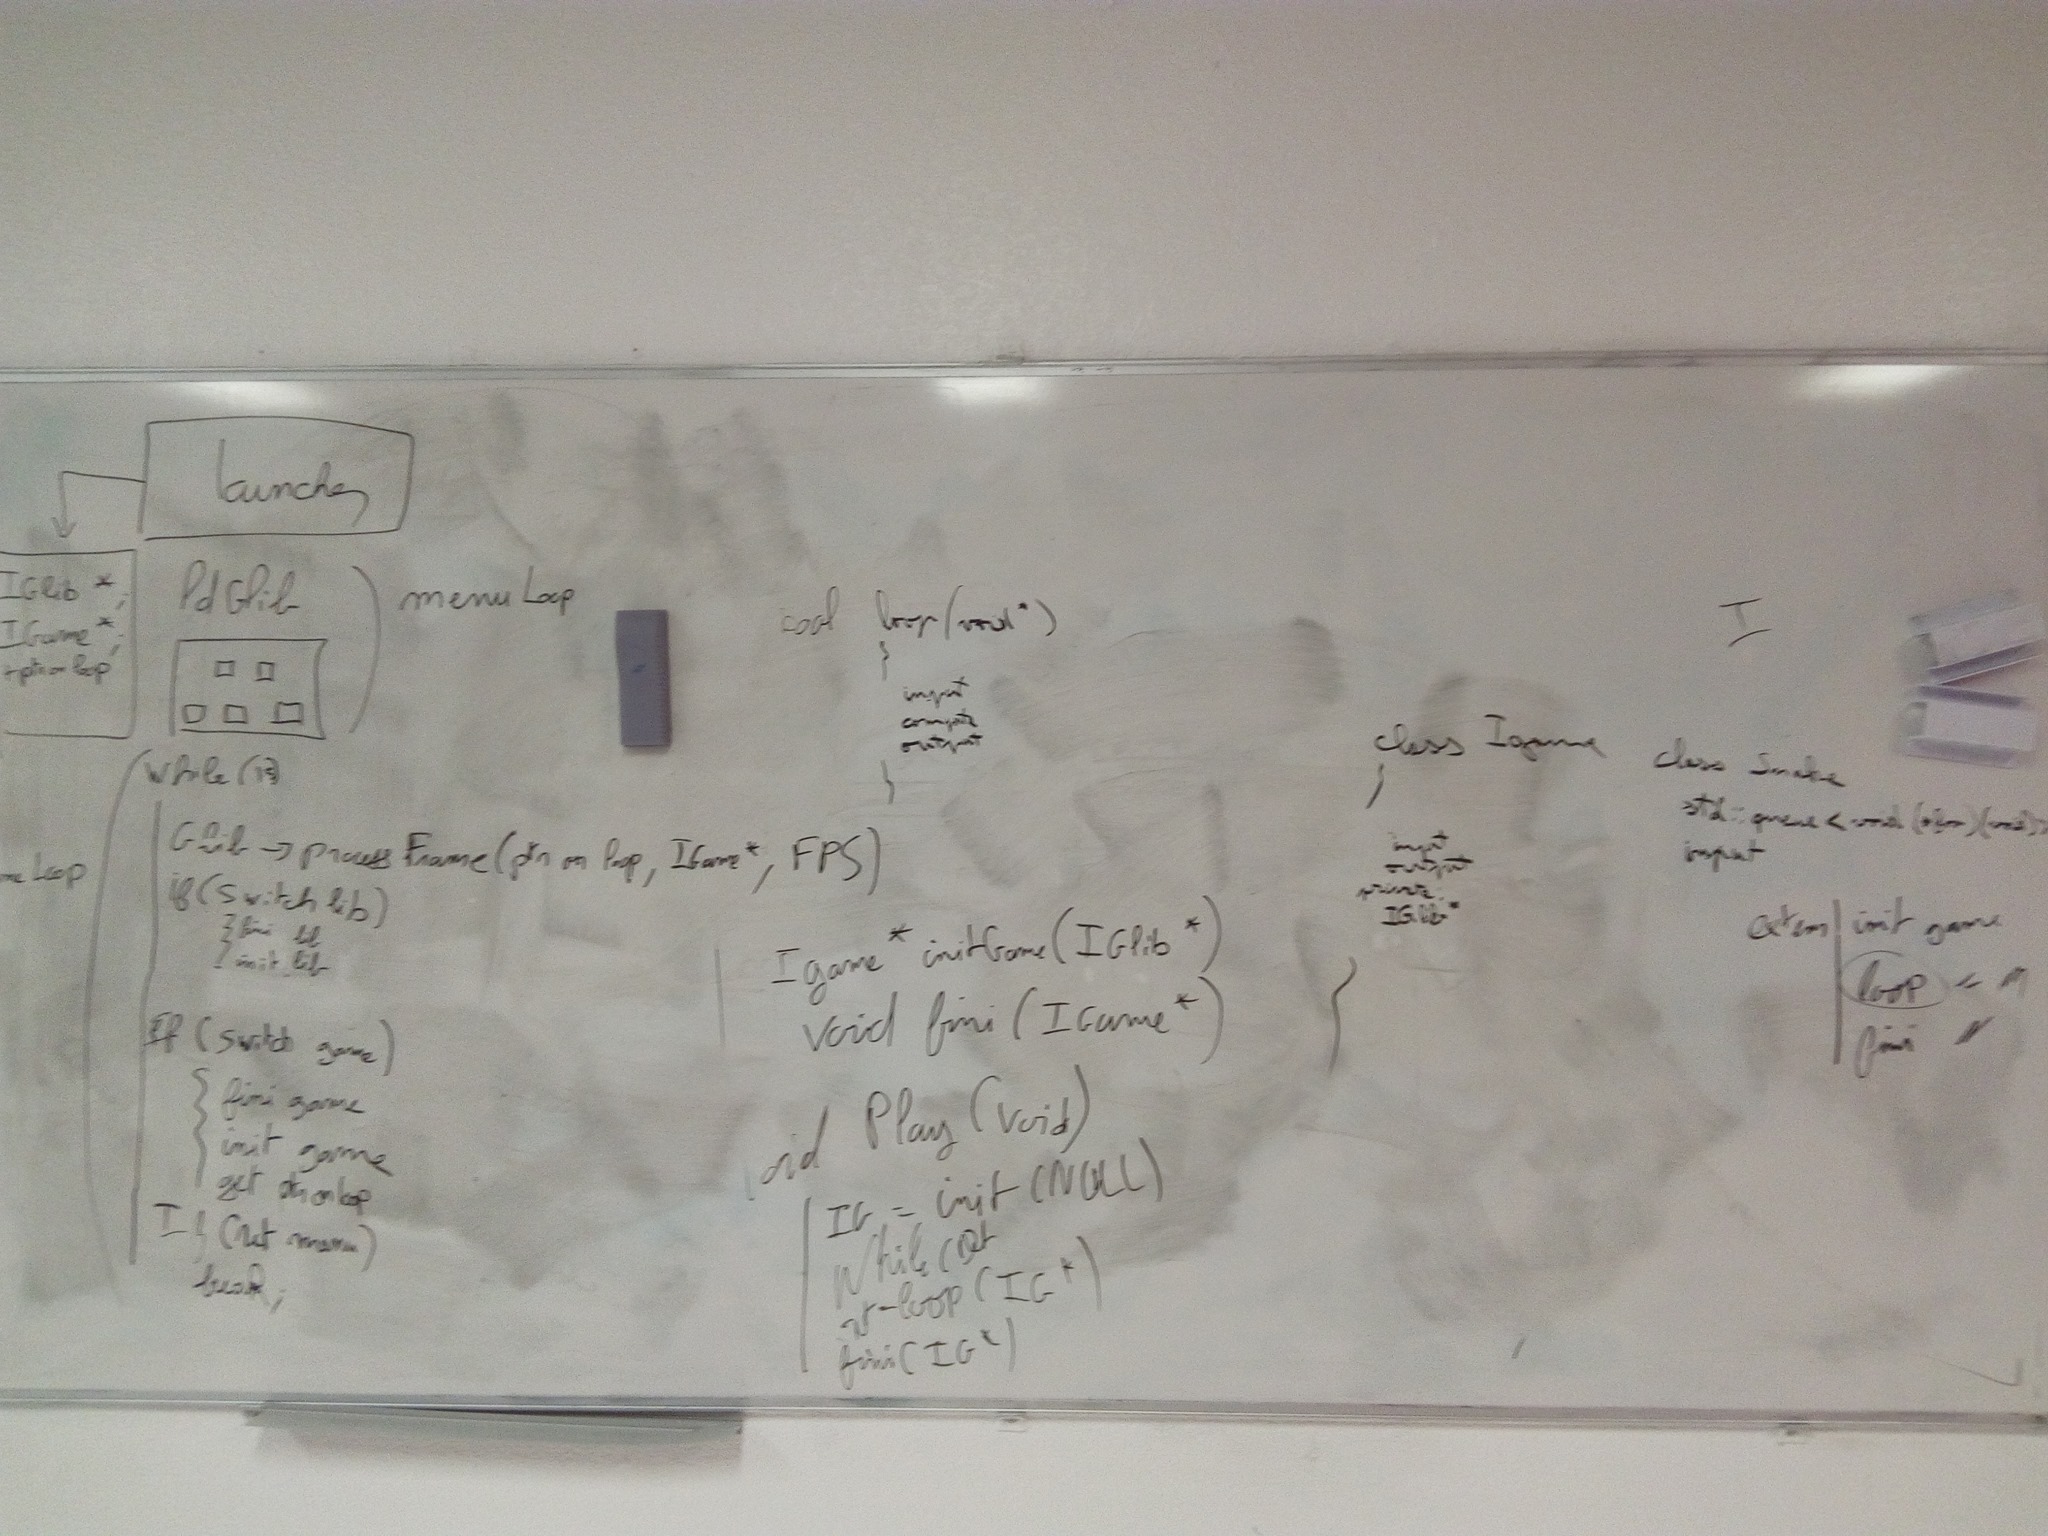 Launcher
IGlib *;
IGame *;
ptr on loop
LdGlib
menu Loop
Loop
while (1)
Glib → process Frame (ptr on loop, IGame *, FPS)
if (switch lib)
{ fini lib
init lib
If (switch game)
{ fini game
init game
get ptr on loop
If (ret menu)
break;
loop (void *)
{
input
compute
output
}
Igame * initGame (IGlib *)
void fini (IGame *)
oid Play (void)
IG = init (NULL)
while (
loop (IG *)
fini (IG *)
class Igame
{
input
output
private:
IGlib *
}
I
class Snake
std::queue < void (void)>
input
extern
init game
loop "
fini "